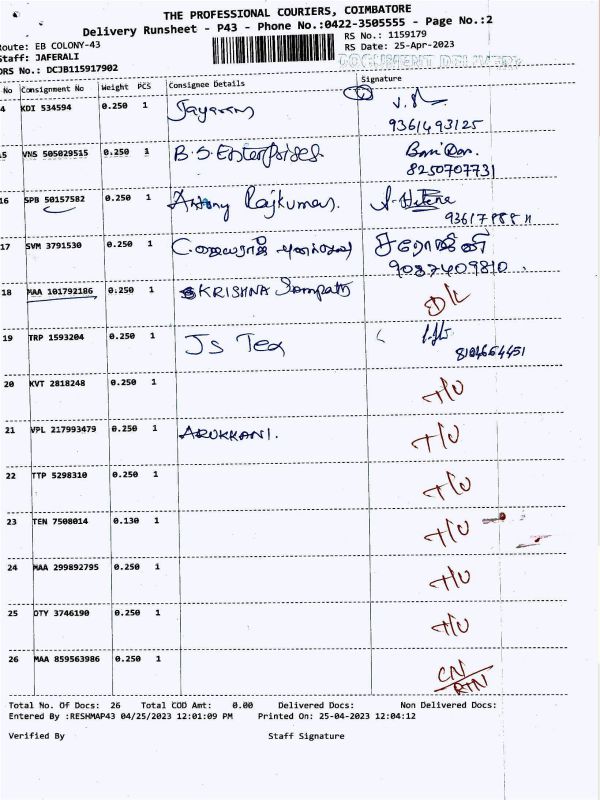 THE PROFESSIONAL COURIERS, COIMBATORE
Delivery Runsheet - P43 - Phone No.:0422-3505555 - Page No.:2
Route: EB COLONY-43 RS No.: 1159179
Staff: JAFERALI RS Date: 25-Apr-2023
DRS No.: DCJB115917902 DOCUMENT DELIVERY
No Consignment No Weight PCS Consignee Details Signature
4 KDI 534594 0.250 1 Jayaram
9361493125
5 VNS 505029515 0.250 1 B.S. Enterprises
8250707731
16 SPB 50157582 0.250 1 Antony Rajkumar.
17 SVM 3791530 0.250 1 சரோஜினி
9087409810.
18 MAA 101792186 0.250 1 KRISHNA Sampath D/L
19 TRP 1593204 0.250 1 Js Tex
8104664451
20 KVT 2818248 0.250 1 T/U
21 VPL 217993479 0.250 1 ARUKKANI. T/U
22 TTP 5298310 0.250 1 T/U
23 TEN 7508014 0.130 1 T/U
24 MAA 299892795 0.250 1 T/U
25 OTY 3746190 0.250 1 T/U
26 MAA 859563986 0.250 1 CN
RTN
Total No. Of Docs: 26 Total COD Amt: 0.00 Delivered Docs: Non Delivered Docs:
Entered By :RESHMAP43 04/25/2023 12:01:09 PM Printed On: 25-04-2023 12:04:12
Verified By Staff Signature